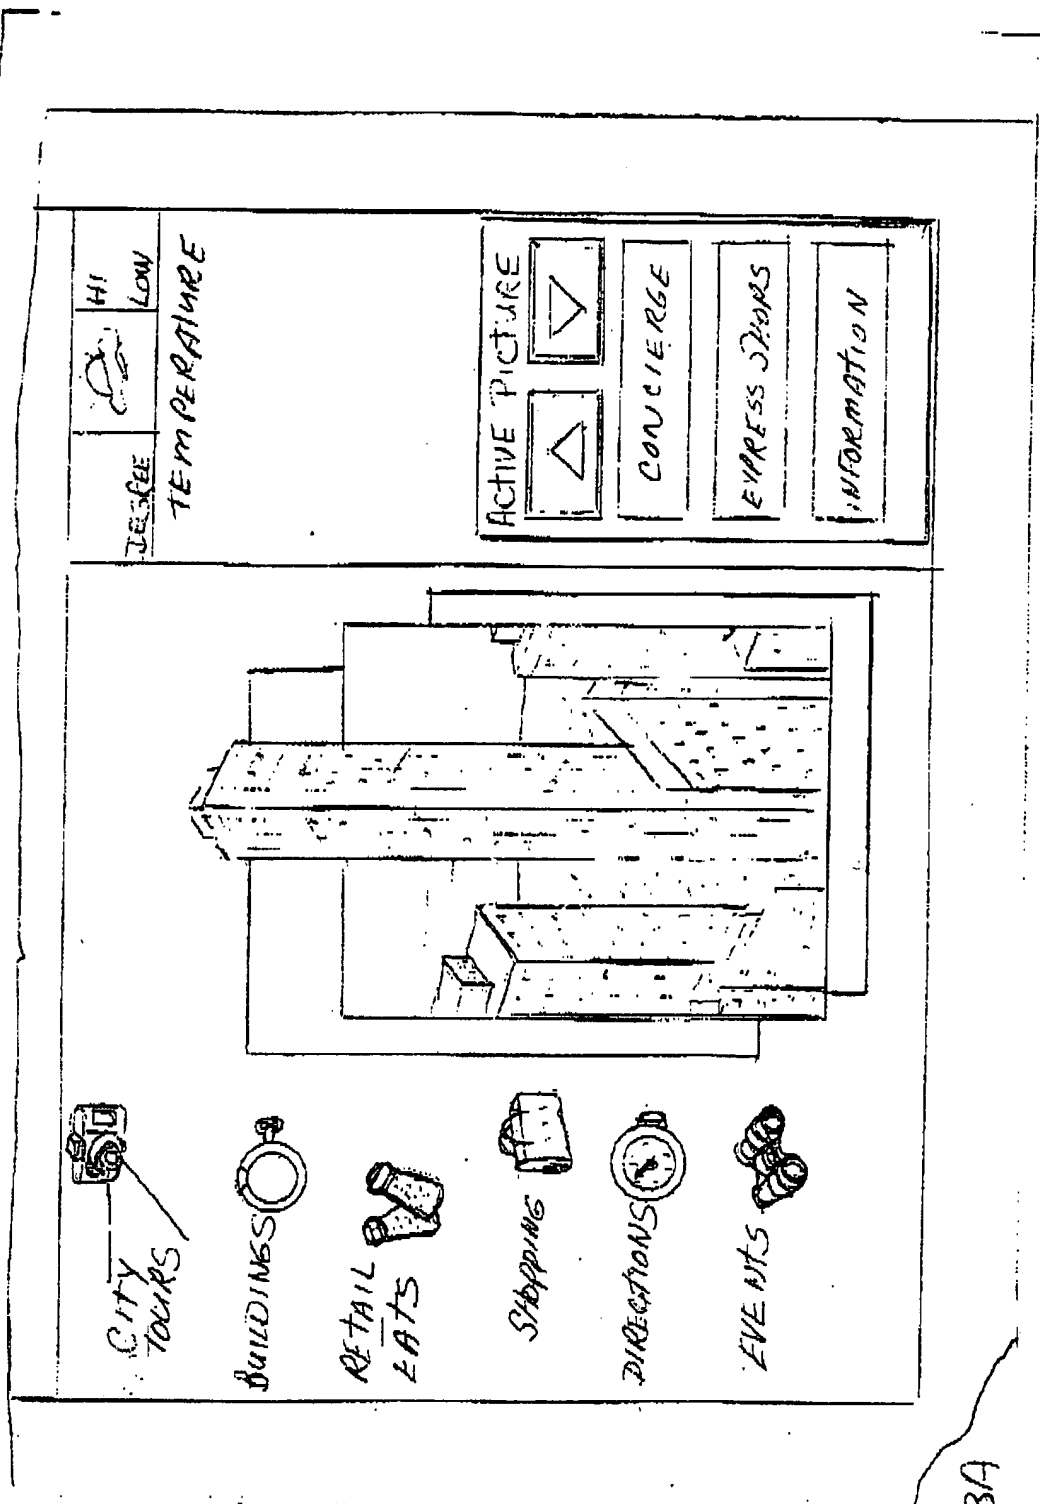 CITY
TOURS
BUILDINGS
RETAIL
EATS
SHOPPING
DIRECTIONS
EVENTS
DEGREE
HI
LOW
TEMPERATURE
ACTIVE PICTURE
CONCIERGE
EXPRESS SHOPS
INFORMATION
3A